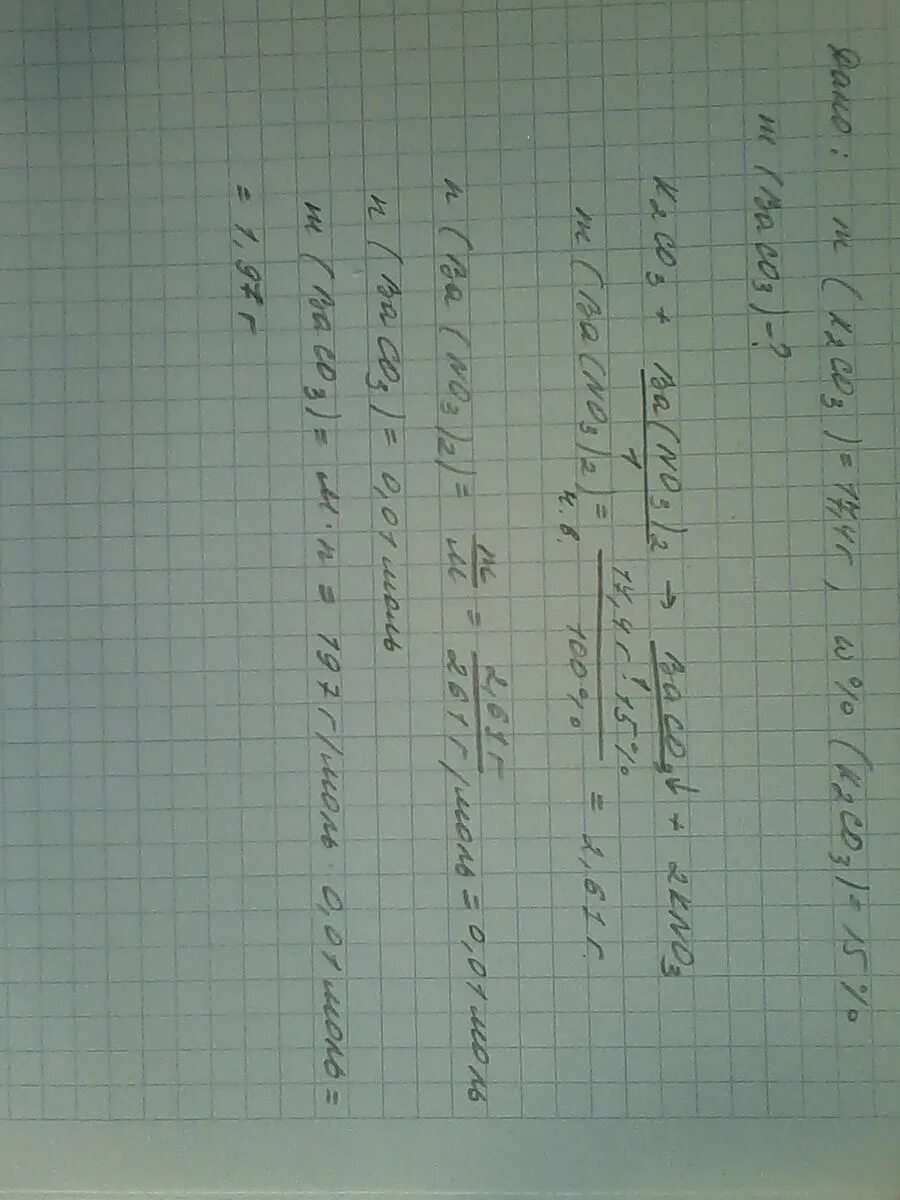 Дано: m (K2CO3) = 17,4 г, ω% (K2CO3) = 15%
m (BaCO3) - ?
K2CO3 + Ba(NO3)2 → BaCO3↓ + 2KNO3
1 1
m (Ba(NO3)2) ч.в. = 17,4 г · 15% / 100% = 2,61 г.
n (Ba(NO3)2) = m / M = 2,61 г / 261 г/моль = 0,01 моль
n (BaCO3) = 0,01 моль
m (BaCO3) = M · n = 197 г/моль · 0,01 моль =
= 1,97 г